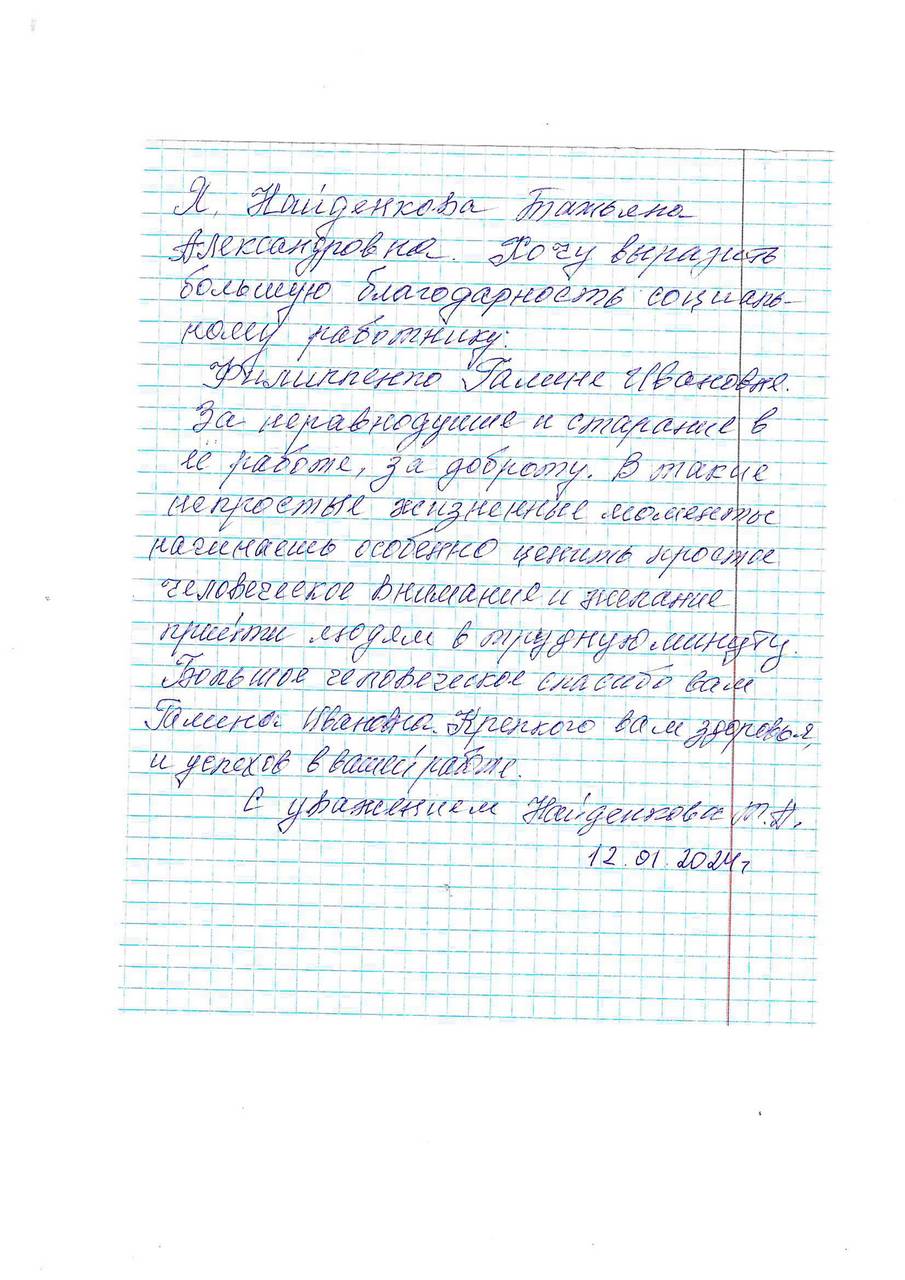 Я, Найденкова Татьяна
Александровна. Хочу выразить
большую благодарность социаль-
ному работнику:
Филиппенко Галине Ивановне.
За неравнодушие и старание в
её работе, за доброту. В такие
непростые жизненные моменты
начинаешь особенно ценить простое
человеческое внимание и желание
прийти людям в трудную минуту.
Большое человеческое спасибо вам
Галина Ивановна. Крепкого вам здоровья,
и успехов в вашей работе.
С уважением Найденкова Т.А.
12.01.2024г